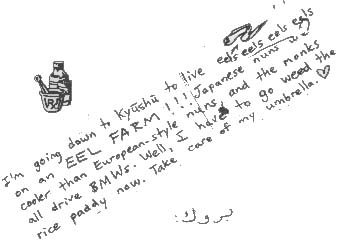 I'm going down to Kyūshū to live eels eels eels eels
on an EEL FARM!!! Japanese nuns
cooler than European-style nuns, and the monks
all drive BMWs. Well, I have to go weed the
rice paddy now. Take care of my umbrella. ♡